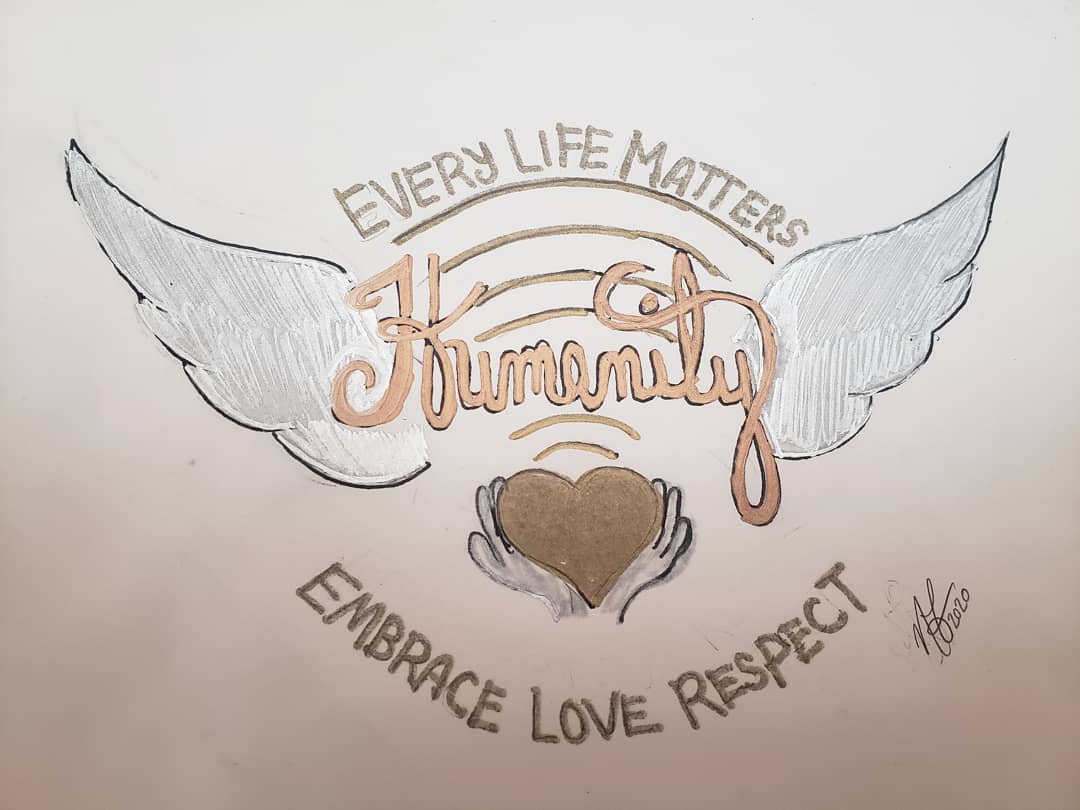 EVERY LIFE MATTERS
Humanity
EMBRACE LOVE RESPECT
2020